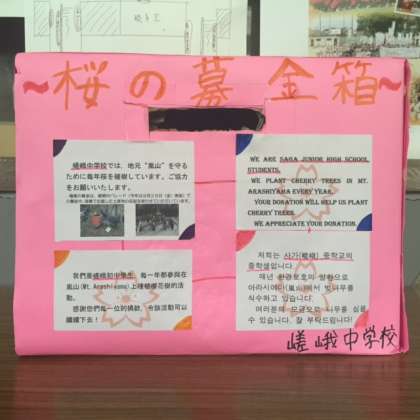 ~桜の募金箱~
嵯峨中学校では、地元“嵐山”を守る
ために毎年桜を植樹しています。ご協力
をお願いいたします。
WE ARE SAGA JUNIOR HIGH SCHOOL
STUDENTS.
WE PLANT CHERRY TREES IN MT.
ARASHIYAMA EVERY YEAR.
YOUR DONATION WILL HELP US PLANT
CHERRY TREES.
WE APPRECIATE YOUR DONATION.
我們是嵯峨初中學生，每一年都參與在
嵐山(Mt. Arashiyama)上種植櫻花樹的活
動。
感謝您們每一位的捐款，令該活動可以
繼續下去！
저희는 사가(嵯峨) 중학교의
중학생입니다.
매년 환경보호의 일환으로
아라시야마(嵐山)에서 벚나무를
식수하고 있습니다.
여러분의 모금으로 나무를 심을
수 있습니다. 잘 부탁드립니다!
嵯峨中学校